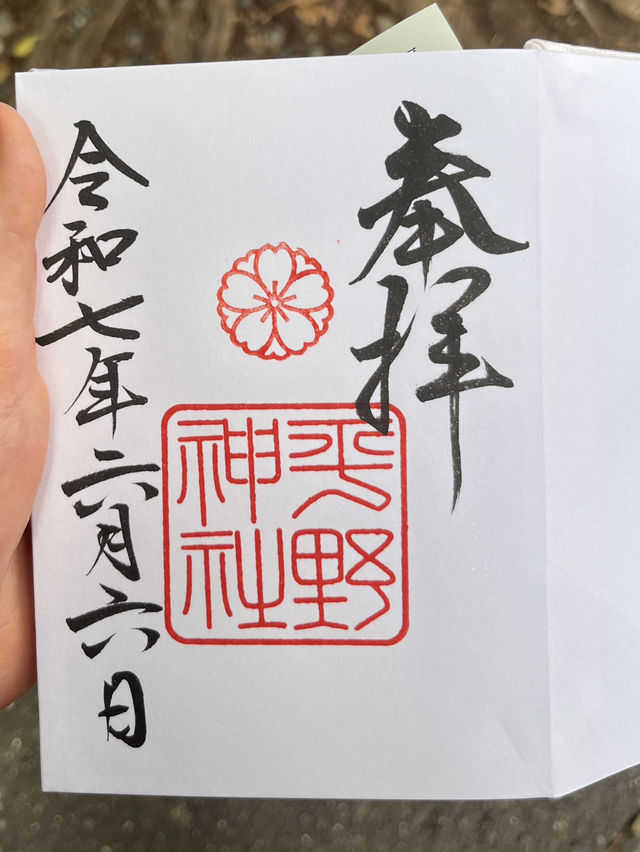 奉拝
平野
神社
令和七年六月六日